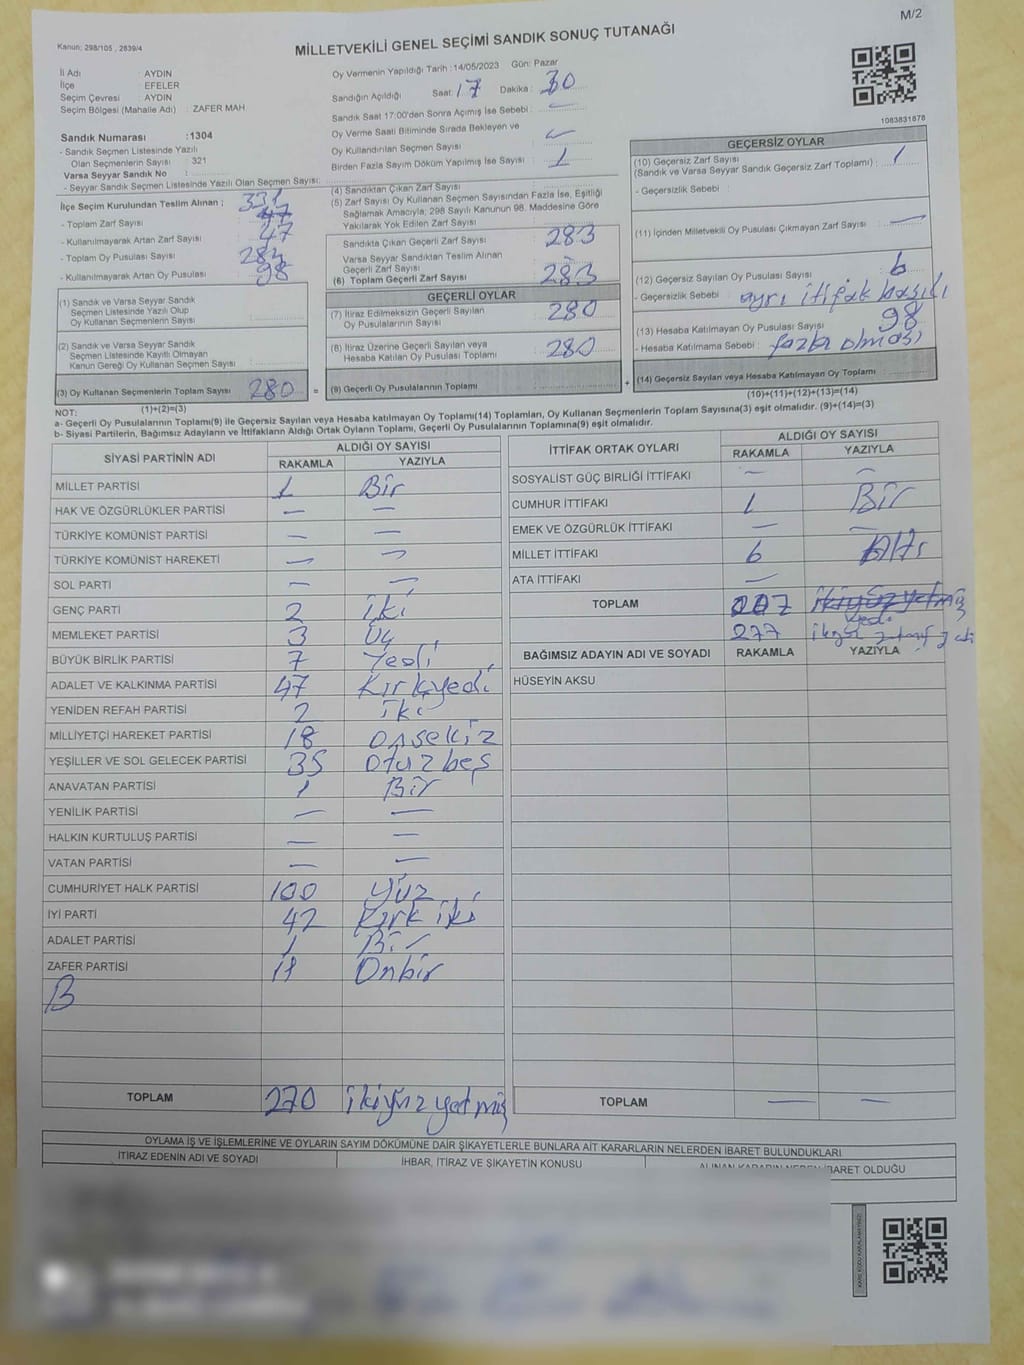 M/2
Kanun; 298/105 , 2839/4
MİLLETVEKİLİ GENEL SEÇİMİ SANDIK SONUÇ TUTANAĞI
İl Adı : AYDIN
İlçe : EFELER
Seçim Çevresi : AYDIN
Seçim Bölgesi (Mahalle Adı) : ZAFER MAH
Sandık Numarası : 1304
- Sandık Seçmen Listesinde Yazılı
Olan Seçmenlerin Sayısı : 321
Varsa Seyyar Sandık No :
- Seyyar Sandık Seçmen Listesinde Yazılı Olan Seçmen Sayısı:
Oy Vermenin Yapıldığı Tarih :14/05/2023 Gün: Pazar
Sandığın Açıldığı Saat: 17 Dakika: 30
Sandık Saat 17:00'den Sonra Açımış İse Sebebi : —
Oy Verme Saati Bitiminde Sırada Bekleyen ve
Oy Kullandırılan Seçmen Sayısı :
Birden Fazla Sayım Döküm Yapılmış İse Sayısı : 1
1083831878
İlçe Seçim Kurulundan Teslim Alınan ; 331
- Toplam Zarf Sayısı
- Kullanılmayarak Artan Zarf Sayısı : 47
- Toplam Oy Pusulası Sayısı
- Kullanılmayarak Artan Oy Pusulası : 98
(1) Sandık ve Varsa Seyyar Sandık
Seçmen Listesinde Yazılı Olup
Oy Kullanan Seçmenlerin Sayısı
(2) Sandık ve Varsa Seyyar Sandık
Seçmen Listesinde Kayıtlı Olmayan
Kanun Gereği Oy Kullanan Seçmen Sayısı
(3) Oy Kullanan Seçmenlerin Toplam Sayısı 280 =
(4) Sandıktan Çıkan Zarf Sayısı :
(5) Zarf Sayısı Oy Kullanan Seçmen Sayısından Fazla İse, Eşitliği
Sağlamak Amacıyla; 298 Sayılı Kanunun 98. Maddesine Göre
Yakılarak Yok Edilen Zarf Sayısı :
Sandıkta Çıkan Geçerli Zarf Sayısı : 283
Varsa Seyyar Sandıktan Teslim Alınan
Geçerli Zarf Sayısı :
(6) Toplam Geçerli Zarf Sayısı : 283
GEÇERLİ OYLAR
(7) İtiraz Edilmeksizin Geçerli Sayılan
Oy Pusulalarının Sayısı : 280
(8) İtiraz Üzerine Geçerli Sayılan veya
Hesaba Katılan Oy Pusulası Toplamı : 280
(9) Geçerli Oy Pusulalarının Toplamı : +
GEÇERSİZ OYLAR
(10) Geçersiz Zarf Sayısı
(Sandık ve Varsa Seyyar Sandık Geçersiz Zarf Toplamı) : 1
- Geçersizlik Sebebi :
(11) İçinden Milletvekili Oy Pusulası Çıkmayan Zarf Sayısı : —
(12) Geçersiz Sayılan Oy Pusulası Sayısı : 6
- Geçersizlik Sebebi : ayrı itifak basılı
(13) Hesaba Katılmayan Oy Pusulası Sayısı : 98
- Hesaba Katılmama Sebebi : fazla olması
(14) Geçersiz Sayılan veya Hesaba Katılmayan Oy Toplamı :
(10)+(11)+(12)+(13)=(14)
NOT: (1)+(2)=(3)
a- Geçerli Oy Pusulalarının Toplamı(9) ile Geçersiz Sayılan veya Hesaba katılmayan Oy Toplamı(14) Toplamları, Oy Kullanan Seçmenlerin Toplam Sayısına(3) eşit olmalıdır. (9)+(14)=(3)
b- Siyasi Partilerin, Bağımsız Adayların ve İttifakların Aldığı Ortak Oyların Toplamı, Geçerli Oy Pusulalarının Toplamına(9) eşit olmalıdır.
SİYASİ PARTİNİN ADI ALDIĞI OY SAYISI
RAKAMLA YAZIYLA
MİLLET PARTİSİ 1 Bir
HAK VE ÖZGÜRLÜKLER PARTİSİ — —
TÜRKİYE KOMÜNİST PARTİSİ — —
TÜRKİYE KOMÜNİST HAREKETİ — —
SOL PARTİ — —
GENÇ PARTİ 2 iki
MEMLEKET PARTİSİ 3 Üç
BÜYÜK BİRLİK PARTİSİ 7 Yedi
ADALET VE KALKINMA PARTİSİ 47 Kırkyedi
YENİDEN REFAH PARTİSİ 2 iki
MİLLİYETÇİ HAREKET PARTİSİ 18 onsekiz
YEŞİLLER VE SOL GELECEK PARTİSİ 35 otuzbeş
ANAVATAN PARTİSİ 1 Bir
YENİLİK PARTİSİ — —
HALKIN KURTULUŞ PARTİSİ — —
VATAN PARTİSİ — —
CUMHURİYET HALK PARTİSİ 100 yüz
İYİ PARTİ 42 Kırk iki
ADALET PARTİSİ 1 Bir
ZAFER PARTİSİ 11 Onbir
B
TOPLAM 270 ikiyüz yetmiş
İTTİFAK ORTAK OYLARI ALDIĞI OY SAYISI
RAKAMLA YAZIYLA
SOSYALİST GÜÇ BİRLİĞİ İTTİFAKI — —
CUMHUR İTTİFAKI 1 Bir
EMEK VE ÖZGÜRLÜK İTTİFAKI — —
MİLLET İTTİFAKI 6 Altı
ATA İTTİFAKI —
TOPLAM
277
BAĞIMSIZ ADAYIN ADI VE SOYADI RAKAMLA YAZIYLA
HÜSEYİN AKSU
TOPLAM — —
OYLAMA İŞ VE İŞLEMLERİNE VE OYLARIN SAYIM DÖKÜMÜNE DAİR ŞİKAYETLERLE BUNLARA AİT KARARLARIN NELERDEN İBARET BULUNDUKLARI
İTİRAZ EDENİN ADI VE SOYADI İHBAR, İTİRAZ VE ŞİKAYETİN KONUSU ALINAN KARARIN NEDEN İBARET OLDUĞU